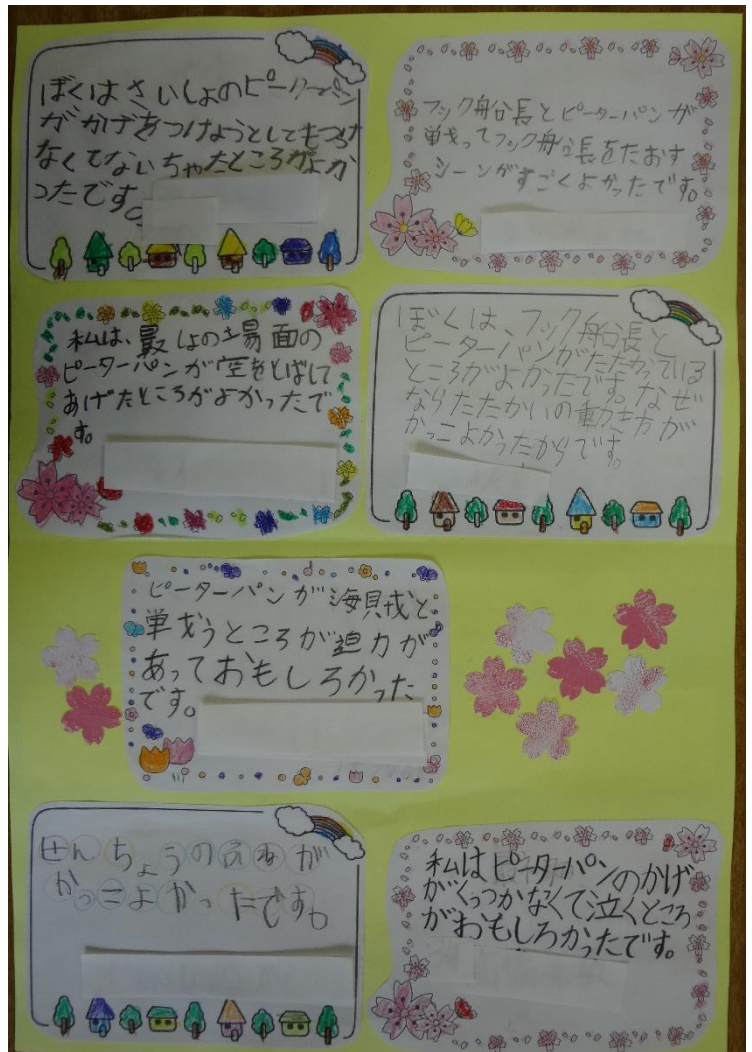 ぼくはさいしょのピーターパン
がかげをつけようとしてもつけ
なくてないちゃたところがよか
ったです。
フック船長とピーターパンが
戦ってフック船長をたおす
シーンがすごくよかったです。
私は、最しょの場面の
ピーターパンが空をとばして
あげたところがよかったで
す。
ぼくは、フック船長と
ピーターパンがたたかっている
ところがよかったです。なぜ
ならたたかいの動き方が
かっこよかったからです。
ピーターパンが海賊と
戦うところが迫力が
あっておもしろかった
です。
せんちょうのふねが
かっこよかったです。
私はピーターパンのかげ
がくっつかなくて泣くところ
がおもしろかったです。